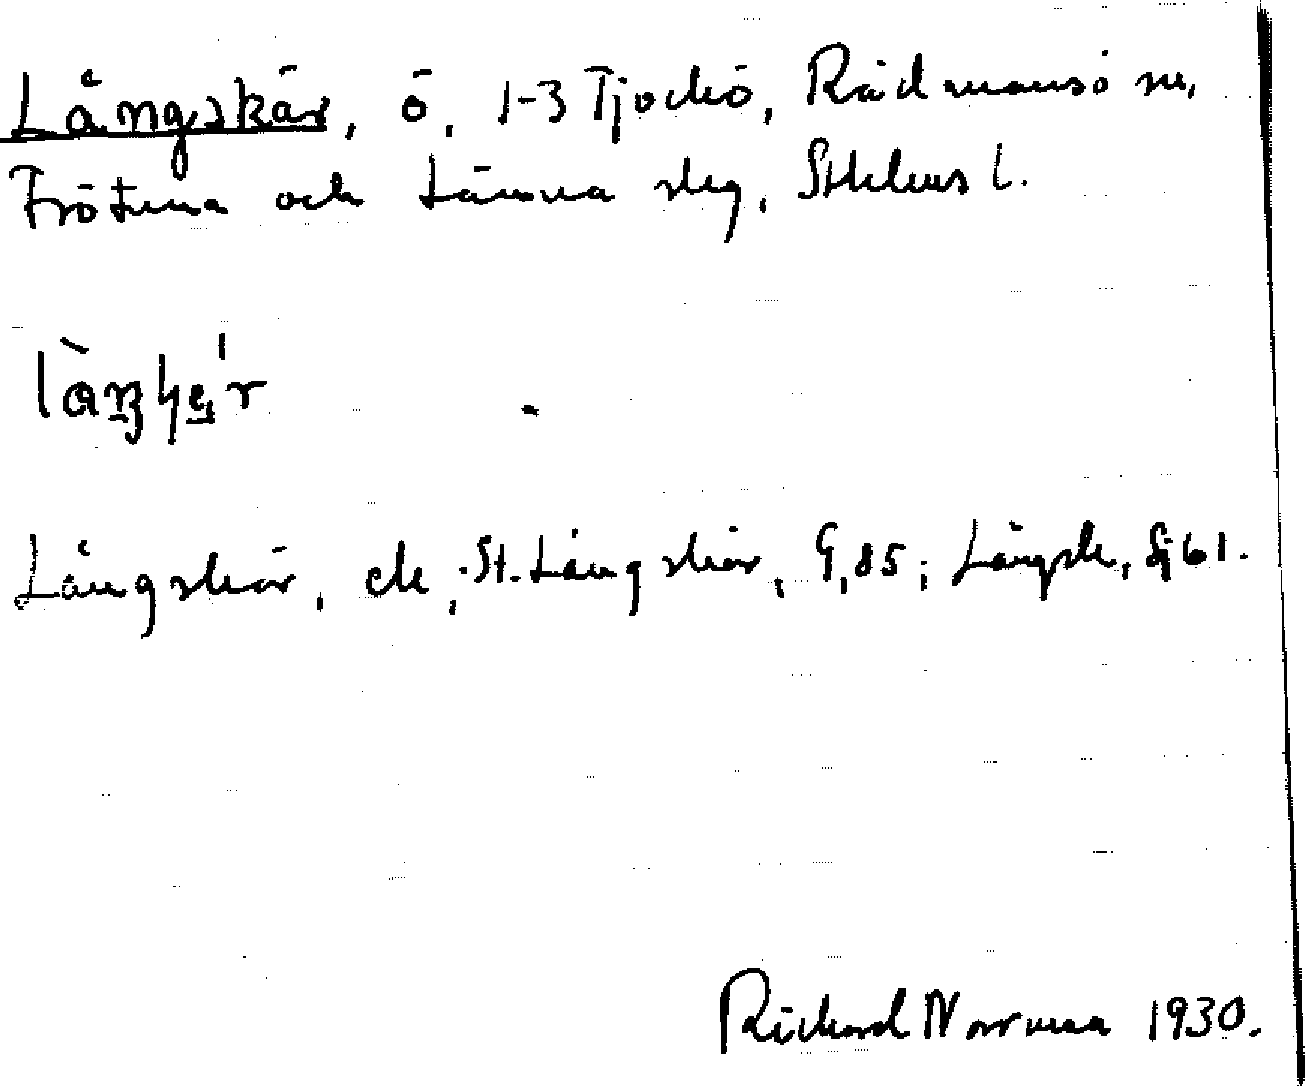 Långskär, ö, 1-3 Tjockö, Rådmansö sn,
Frötuna och Länna skg, Sthlms l.
Långskär, ek, St. Långskär, G, 85; Långsk, Sj 61.
Richard Norrman 1930.